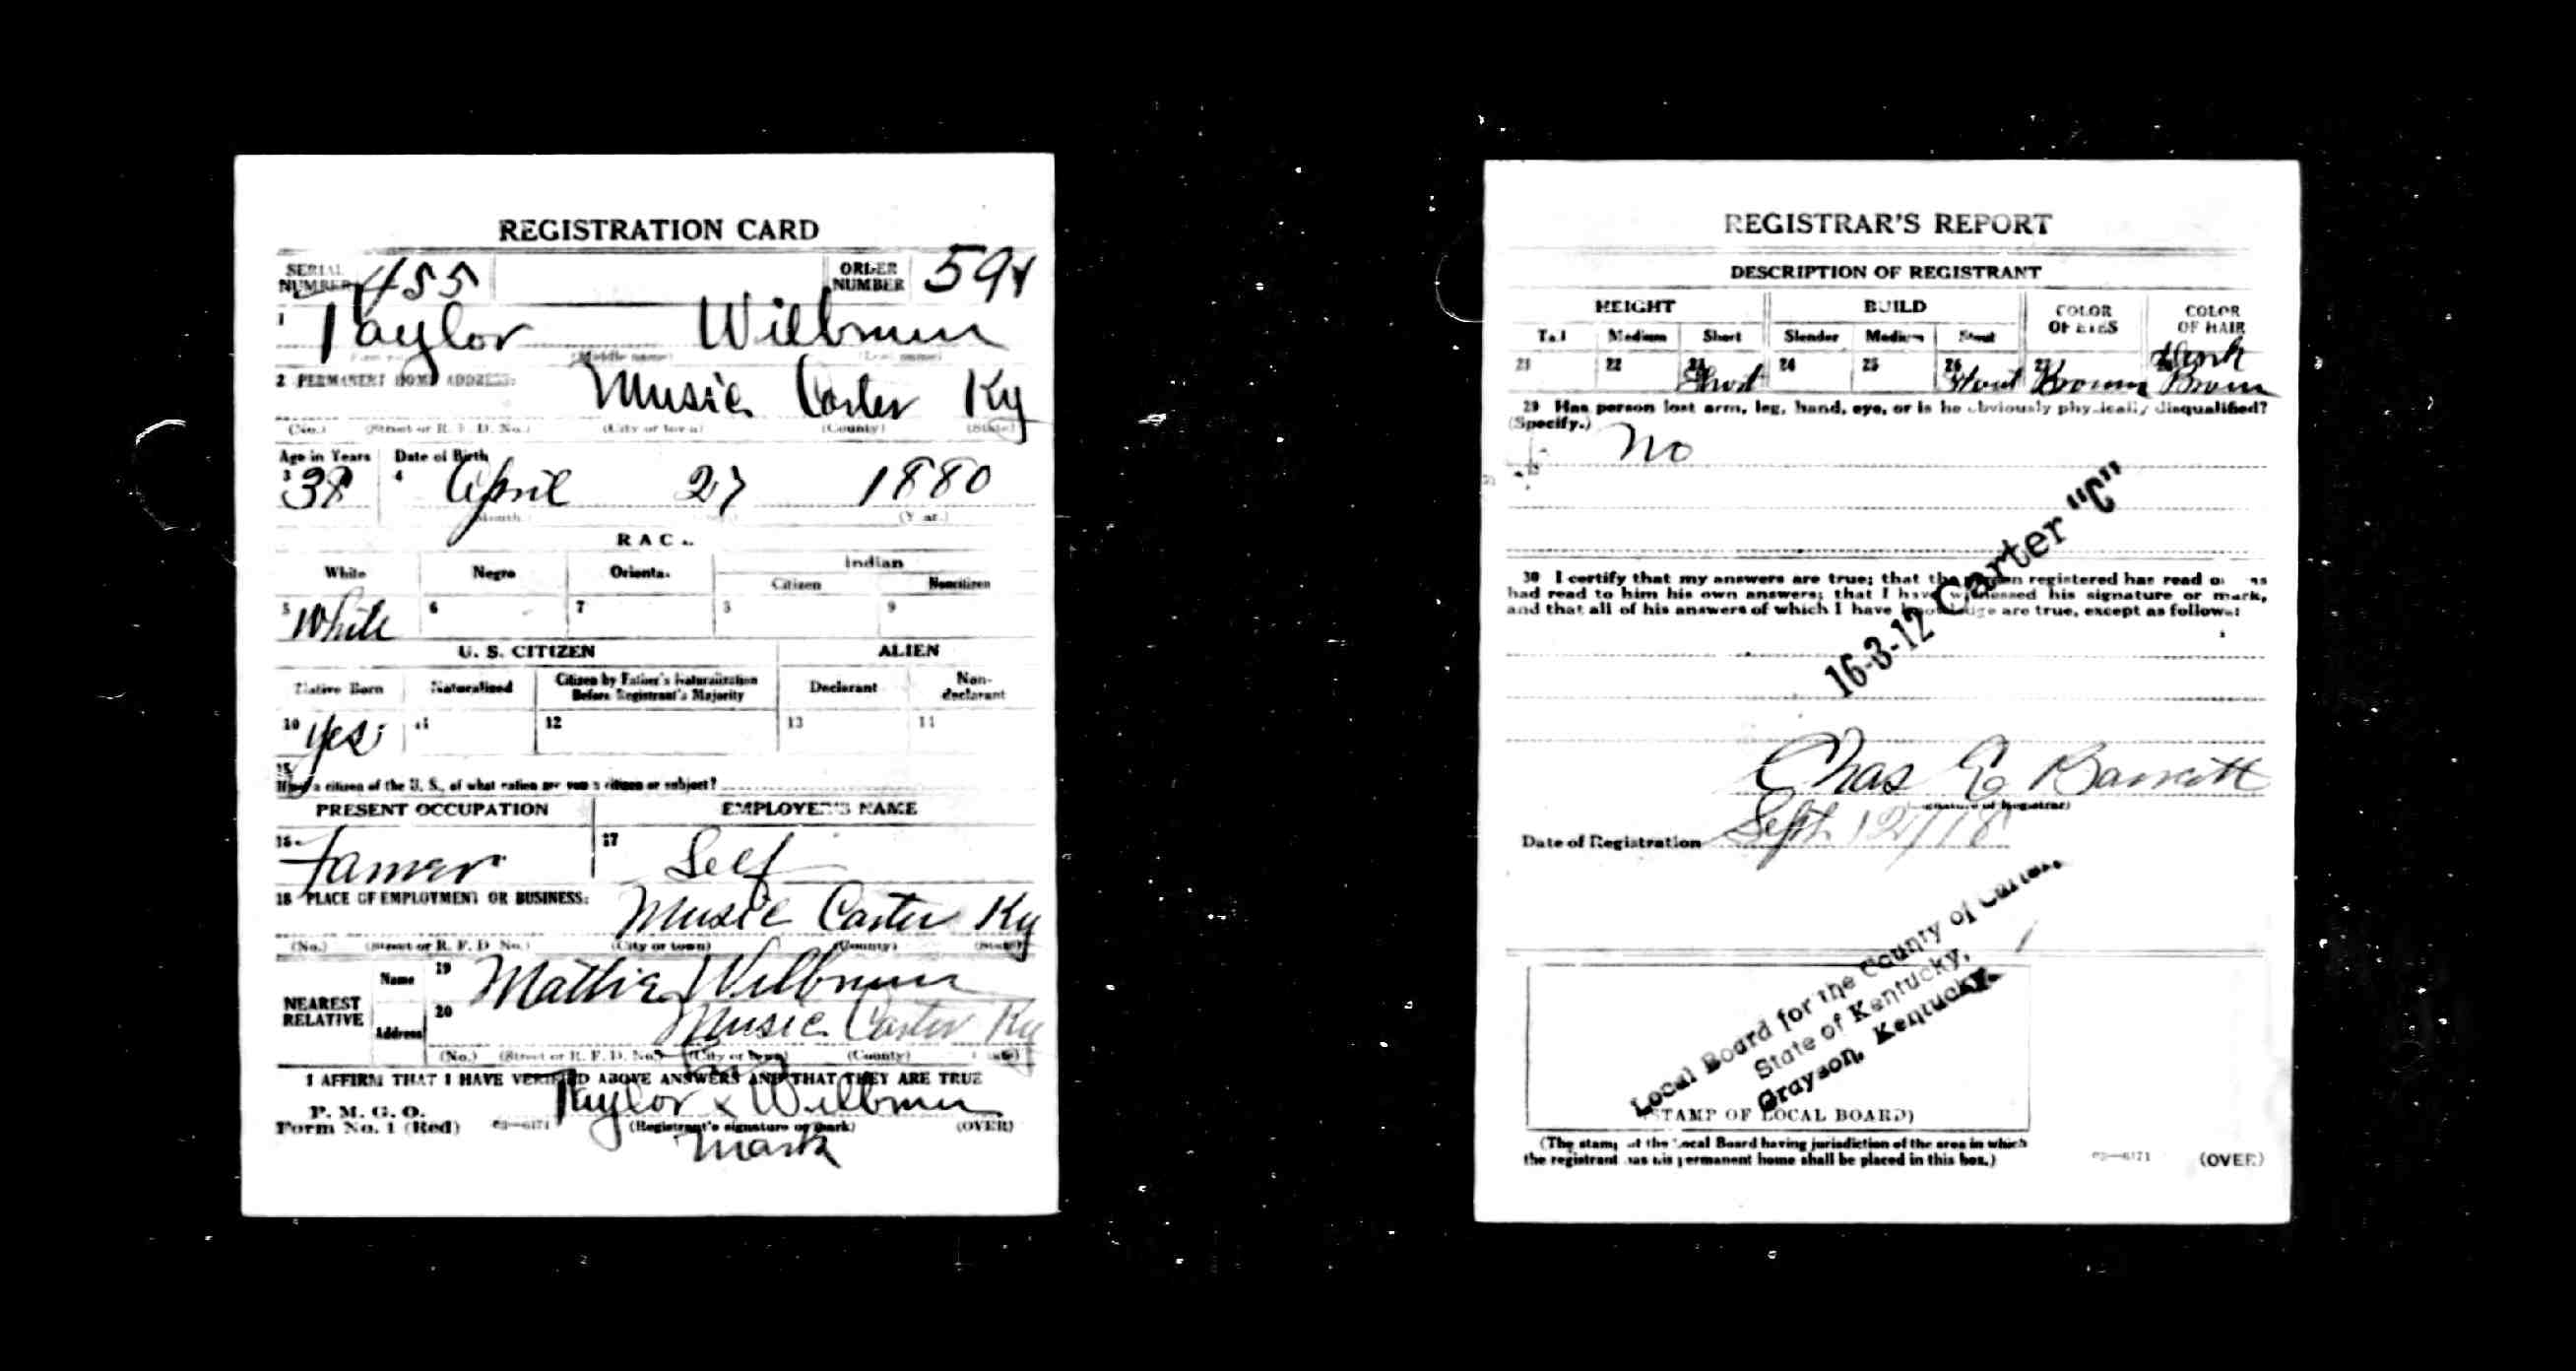 REGISTRATION CARD
SERIAL NUMBER 455 ORDER NUMBER 594
1 Taylor Wilburn
(Middle name)
2 PERMANENT HOME ADDRESS: Music Carter Ky
(No.) (Street or R. F. D. No.) (City or town) (County) (State)
Age in Years Date of Birth
3 38 4 April 27 1880
(Month) (Year.)
RACE
White Negro Oriental Indian
Citizen Noncitizen
5 White 6 7 8 9
U. S. CITIZEN ALIEN
Native Born Naturalized Citizen by Father's Naturalization Before Registrant's Majority Declarant Non-declarant
10 yes 11 12 13 14
15
If not a citizen of the U. S., of what nation are you a citizen or subject?
PRESENT OCCUPATION EMPLOYER'S NAME
16 Famer 17 Self
18 PLACE OF EMPLOYMENT OR BUSINESS: Music Carter Ky
(No.) (Street or R. F. D. No.) (City or town) (County) (State)
NEAREST RELATIVE Name 19 Mattie Wilburn
Address 20 Music Carter Ky
(No.) (Street or R. F. D. No.) (City or town) (County) (State)
I AFFIRM THAT I HAVE VERIFIED ABOVE ANSWERS AND THAT THEY ARE TRUE
P. M. G. O.
Form No. 1 (Red) 03—6171 Taylor x Wilburn
(Registrant's signature or mark) (OVER)
mark
REGISTRAR'S REPORT
DESCRIPTION OF REGISTRANT
HEIGHT BUILD COLOR OF EYES COLOR OF HAIR
Tall Medium Short Slender Medium Stout
21 22 23 Short 24 25 26 Stout 27 Brown Dark Brown
29 Has person lost arm, leg, hand, eye, or is he obviously physically disqualified?
(Specify.) No
30 I certify that my answers are true; that the person registered has read or has
had read to him his own answers; that I have witnessed his signature or mark,
and that all of his answers of which I have knowledge are true, except as follows:
16-3-12 Carter "C"
Chas E Barrett
(Signature of Registrar)
Date of Registration Sept. 12/18
Local Board for the County of Carter,
State of Kentucky,
Grayson, Kentucky.
(STAMP OF LOCAL BOARD)
(The stamp of the Local Board having jurisdiction of the area in which
the registrant has his permanent home shall be placed in this box.)
03—6171 (OVER)